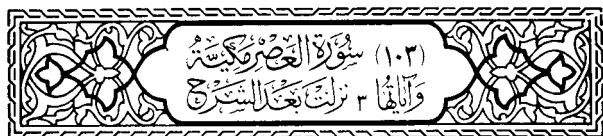 (١٠٣) سُورَةُ الْعَصْرِ مَكِّيَّةٌ
وَآيَاتُهَا ٣ نَزَلَتْ بَعْدَ الشَّرْحِ